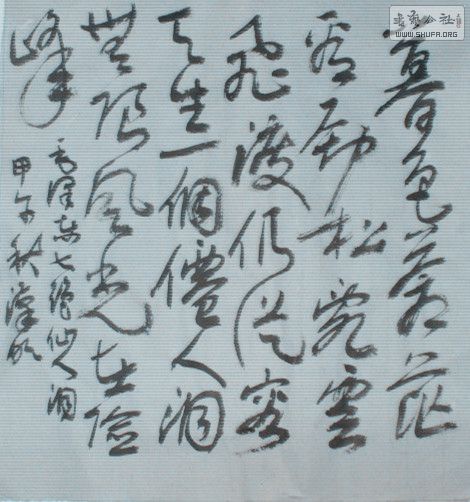 暮色蒼茫
看勁松亂雲
飛渡仍從容
天生一個僊人洞
無限風光在險
峰
毛澤東七絕仙人洞
甲午秋
書藝公社
WWW.SHUFA.ORG